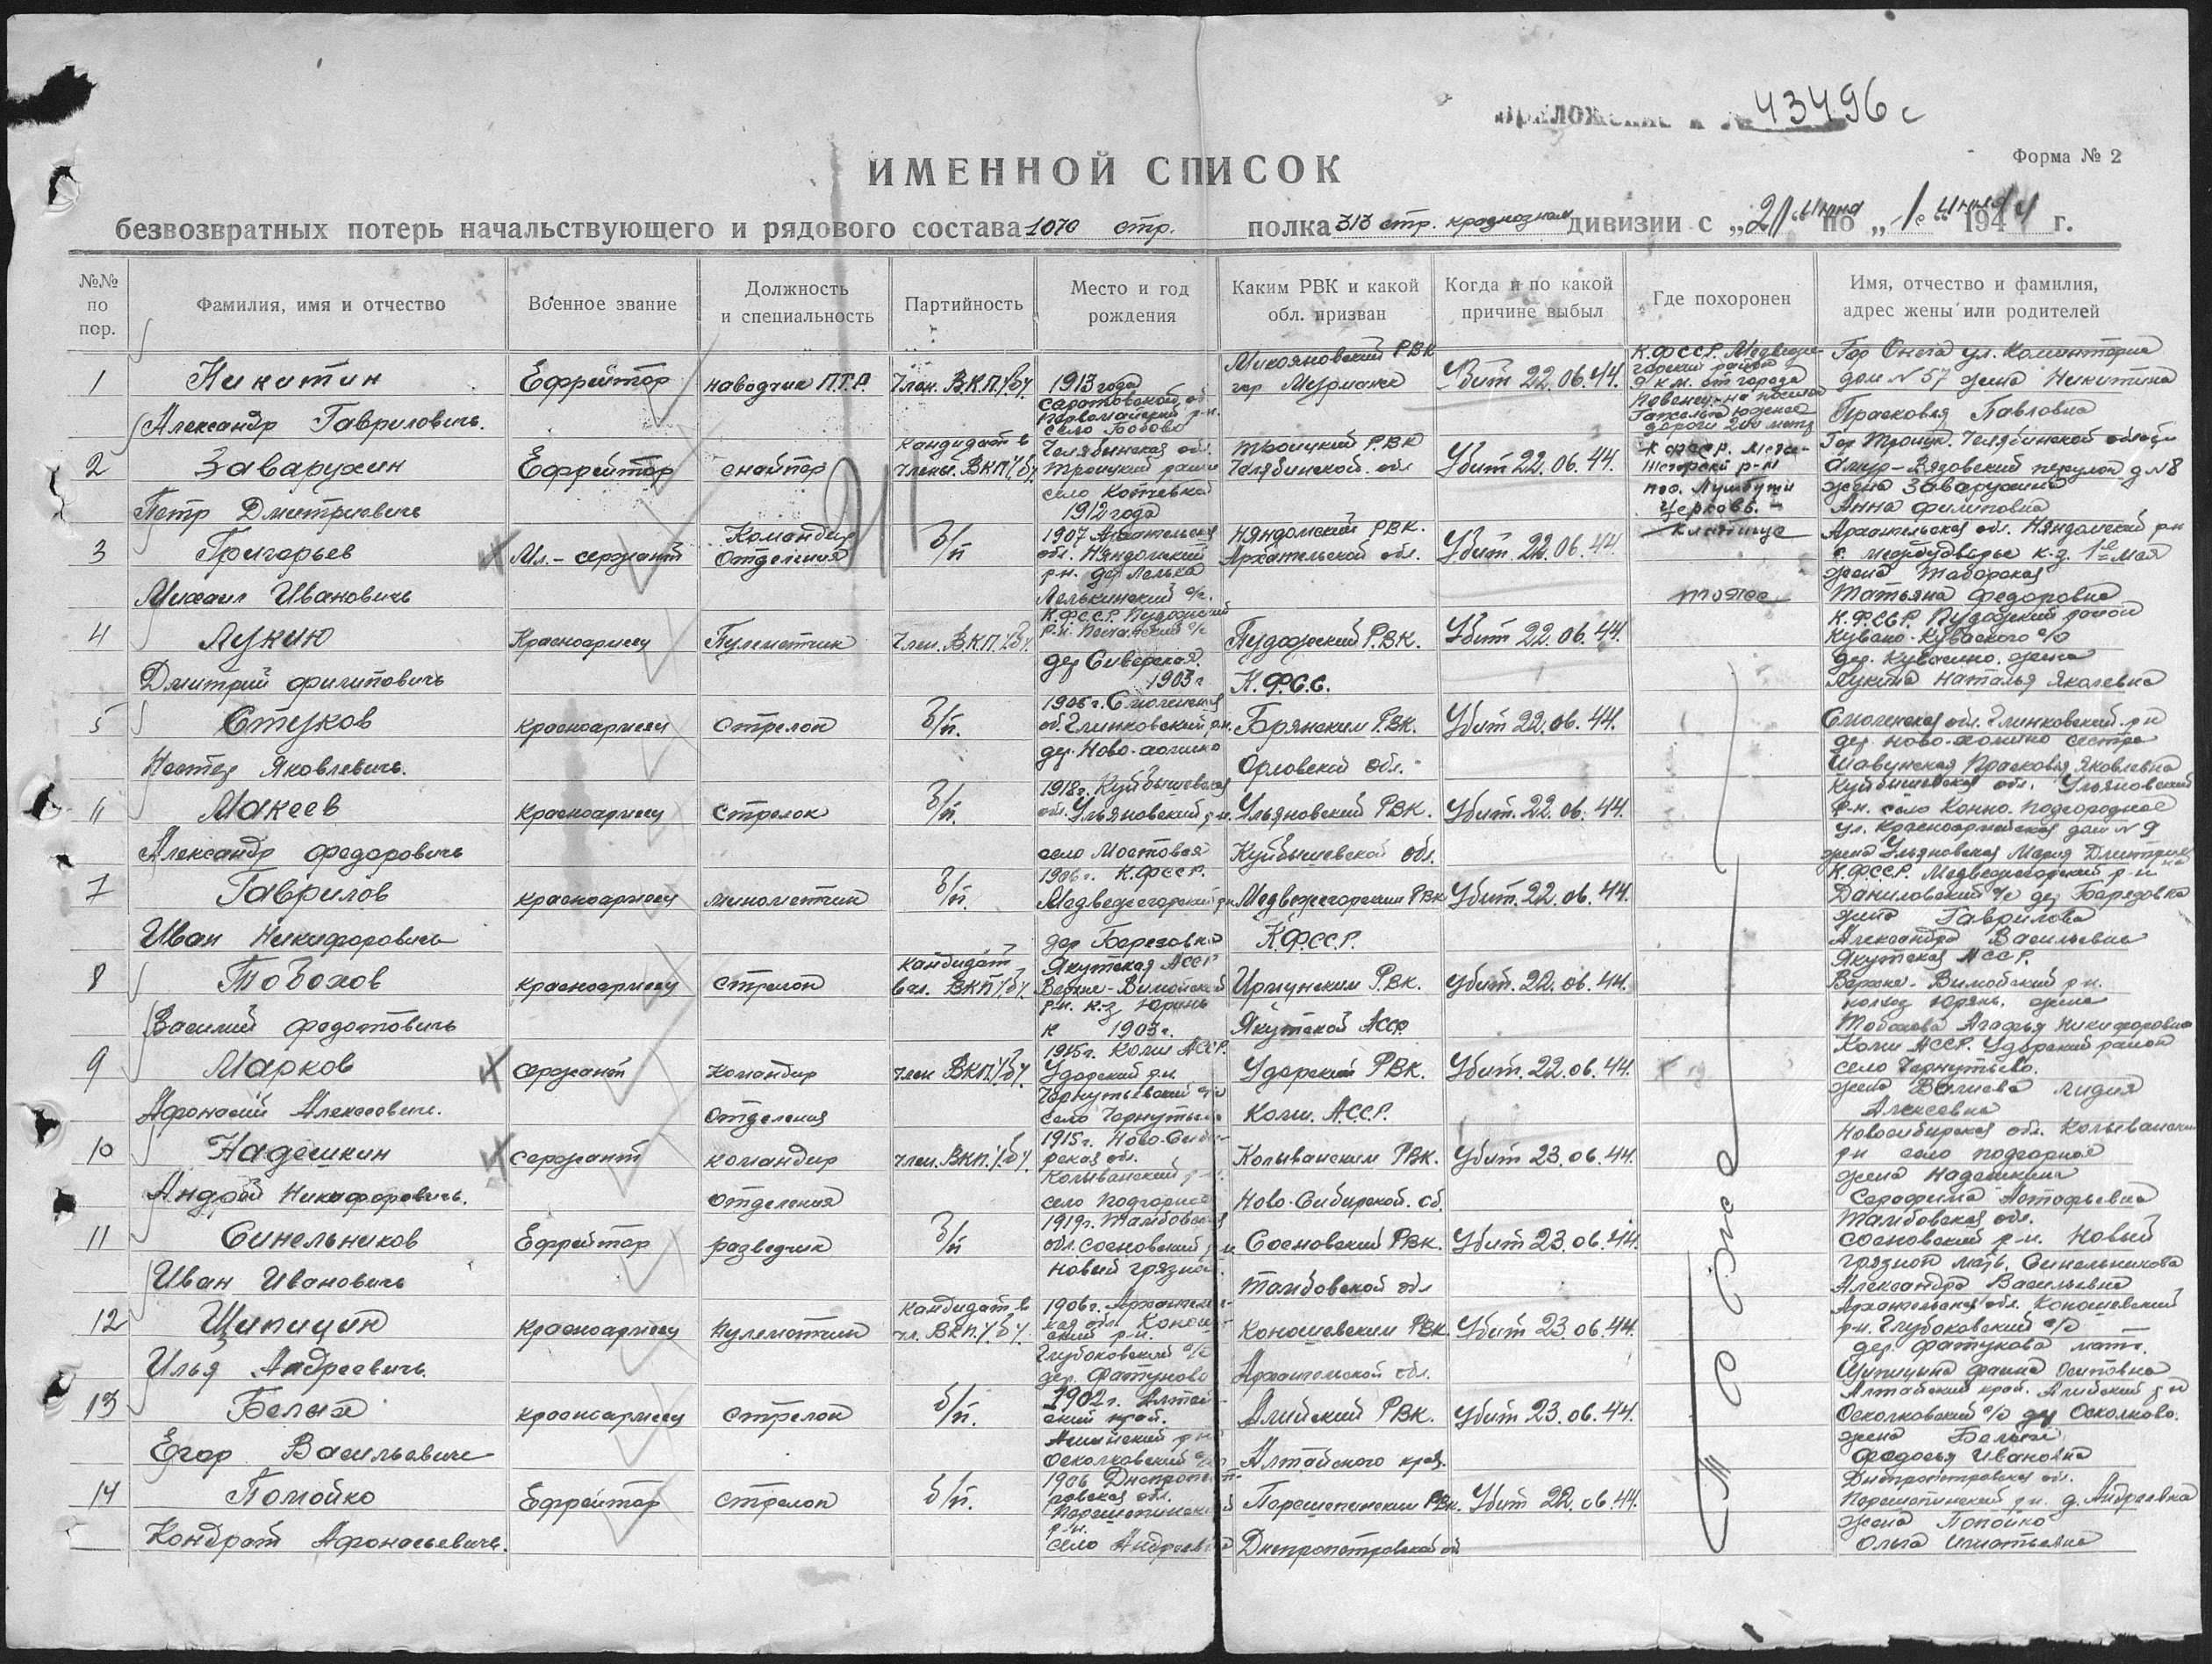 Приложение к № 43496с
Форма № 2
ИМЕННОЙ СПИСОК
безвозвратных потерь начальствующего и рядового состава 1070 стр. полка 313 стр. краснознам дивизии с „21" июня по „1" июля 1944 г.
№№ по пор.
Фамилия, имя и отчество
Военное звание
Должность и специальность
Партийность
Место и год рождения
Каким РВК и какой обл. призван
Когда и по какой причине выбыл
Где похоронен
Имя, отчество и фамилия, адрес жены или родителей
1 Никитин Александр Гаврилович. Ефрейтор наводчик П.Т.Р. Член. ВКП/б/. 1913 года Саратовской об Первомайский р-н. село Бобово Микояновский РВК гор Мурманск Убит 22.06.44. К.ФССР. Медвеже- горский район 9 км. от города Повенец дороги 200 метр Гор Онега ул. Коминтерна дом № 57 жена Никитина Прасковья Павловна
2 Заварухин Петр Дмитриевич Ефрейтор снайпер Кандидат в члены. ВКП/б/. Челябинская обл. Троицкий район село 1912 года Троицкий РВК Челябинской обл Убит 22.06.44. К ФССР. р-н Церковь. Гор Троицк. Челябинской области переулок д №8 жена Заварухина Анна Филиповна
3 Григорьев Михаил Иванович Мл.-сержант Командир отделения б/п 1907 Архангельская обл. Няндомский р-н. дер Лелька Лелькинский с/с. Няндомский РВК. Архангельской обл. Убит. 22.06.44 Кладбище тоже Архангельская обл. Няндомский р-н к-з. 1е мая жена Таборская Татьяна Федоровна
4 Лукин Дмитрий Филипович Красноармеец Пулеметчик Член. ВКП/б/. К.Ф.С.С.Р. Пудожский р-н с/с дер Сиверская. 1903 г Пудожский РВК. К.Ф.С.С. Убит 22.06.44. К.Ф.С.С.Р. Пудожский район с/с дер. жена Лукина Наталья Яковлевна
5 Стуков Нестер Яковлевич. красноармеец стрелок б/п. 1906 г. Смоленская об. Глинковский р-н. дер. Ново-яковлево Брянским РВК. Орловской обл. Убит 22.06.44. Смоленская обл. Глинковский р-н дер. сестра Прасковья Яковлевна
6 Макеев Александр Федорович красноармеец стрелок б/п. 1918 г. Куйбышевская обл. Ульяновский р-н. село Мостовая Ульяновский РВК. Куйбышевской обл. Убит. 22.06.44. Куйбышевская обл. Ульяновский р-н. село Конно. Подгородное ул. Красноармейская дом № 9 жена Ульяновская Мария
7 Гаврилов Иван Никифорович красноармеец минометчик б/п. 1906 г. К.ФССР. Медвежегорский р-н дер Березовка Медвежегорским РВК К.Ф.С.С.Р. Убит. 22.06.44. К.Ф.С.С.Р. Медвежегорский р-н Даниловский с/с дер Березовка жена Гаврилова Александра Васильевна
8 Тобохов Василий Федотович красноармеец стрелок Кандидат в чл. ВКП/б/. Якутская АССР Верхне-Вилюйский р-н. к-з Юрэнь 1903 г. РВК. Якутской АССР Убит. 22.06.44. Якутская АССР. Верхне-Вилюйский р-н. колхоз Юрянь. жена Тобохова Агафья Никифоровна
9 Марков Афонасий Алексеевич. сержант командир отделения член ВКП/б/. 1915 г. Коми АССР. Удорский р-н Чернутьевский с/с село Чернутьево Удорский РВК. Коми. АССР. Убит. 22.06.44. Коми АССР. Удорский район село Чернутьево. жена Лидия Алексеевна
10 Надешкин Андрей Никифорович. сержант командир отделения член. ВКП/б/. 1915 г. Ново-Сиби- рская обл. Колыванский р-н. село Подгорное Колыванским РВК. Ново-Сибирской. об. Убит 23.06.44. Новосибирская обл. Колыванский р-н село подгорное жена Надешкина Серафима Астафьевна
11 Синельников Иван Иванович Ефрейтор разведчик б/п 1919 г. Тамбовская обл. Сосновский р-н Новый грязное Сосновский РВК. Тамбовской обл Убит 23.06.44. Тамбовская обл. Сосновский р-н. Новый мать. Синельникова Александра Васильевна
12 Щипицин Илья Андреевич. красноармеец пулеметчик кандидат в чл. ВКП/б/. 1906 г. Архангель- ская обл. Коношский р-н. Глубоковский с/с дер. Фатуново Коношевским РВК. Архангельской обл. Убит 23.06.44. Архангельская обл. Коношевский р-н. Глубоковский с/с дер. мать. Щипицина Осиповна
13 Белых Егор Васильевич красноармеец стрелок б/п. 1902 г. Алтай- ский край. Алейский р-н Осколковский с/с Алийский РВК. Алтайского края. Убит 23.06.44. Алтайский край. Алийский р-н Осколковский с/с дер Осколково. жена Белых Федосья Ивановна
14 Помойко Кондрат Афонасьевич. Ефрейтор стрелок б/п. 1906 Днепропет- ровская обл. р-н. село Андреевка РВК. Днепропетровской об Убит 22.06.44. Днепропетровская обл. р-н. д. Андреевка жена Ольга Игнатьевна
То же